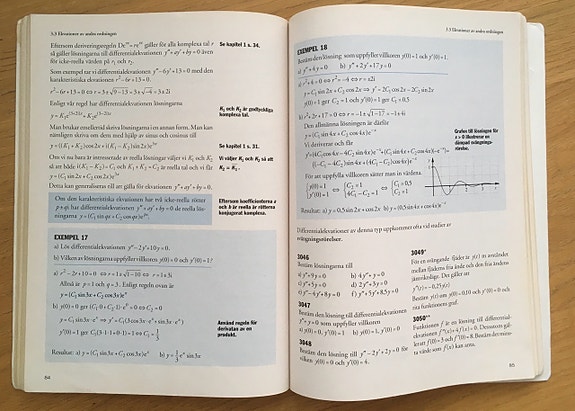 3.3 Ekvationer av andra ordningen
Eftersom deriveringsregeln De^rx = re^rx gäller för alla komplexa tal r
så gäller lösningarna till differentialekvationen y″ + ay′ + by = 0 även
för icke-reella värden på r₁ och r₂.
Se kapitel 1 s. 34.
Som exempel tar vi differentialekvationen y″ − 6y′ + 13y = 0 med den
karakteristiska ekvationen r² − 6r + 13 = 0.
r² − 6r + 13 = 0 ⇔ r = 3 ± √9 − 13 = 3 ± √−4 = 3 ± 2i
Enligt vår regel har differentialekvationen lösningarna
K₁ och K₂ är godtyckliga
komplexa tal.
Man brukar emellertid skriva lösningarna i en annan form. Man kan
nämligen skriva om den med hjälp av sinus och cosinus till
y = ((K₁ + K₂) cos 2x + i(K₁ − K₂) sin 2x)e^3x
Se kapitel 1 s. 31.
Om vi nu bara är intresserade av reella lösningar väljer vi K₁ och K₂
så att både i(K₁ − K₂) = C₁ och K₁ + K₂ = C₂ är reella tal och vi får
y = (C₁ sin 2x + C₂ cos 2x)e^3x
Vi väljer K₁ och K₂ så att
Detta kan generaliseras till att gälla för ekvationen y″ + ay′ + by = 0.
Om den karakteristiska ekvationen har två icke-reella rötter
p + qi har differentialekvationen y″ + ay′ + by = 0 de reella lös-
ningarna y = (C₁ sin qx + C₂ cos qx)e^px.
Eftersom koefficienterna a
och b är reella är rötterna
konjugerat komplexa.
EXEMPEL 17
a) Lös differentialekvationen y″ − 2y′ + 10y = 0.
b) Vilken av lösningarna uppfyller villkoren y(0) = 0 och y′(0) = 1?
a) r² − 2r + 10 = 0 ⇔ r = 1 ± √1 − 10 ⇔ r = 1 ± 3i
Alltså är p = 1 och q = 3. Enligt regeln ovan är
y = (C₁ sin 3x + C₂ cos 3x)e^x
b) y(0) = 0 ger (C₁·0 + C₂·1)·e^0 = 0 ⇔ C₂ = 0
y = C₁ sin 3x·e^x ⇒ y′ = C₁(3 cos 3x·e^x + sin 3x·e^x)
y′(0) = 1 ger C₁(3·1·1 + 0·1) = 1 ⇔ C₁ = 1/3
Använd regeln för
derivatan av en
produkt.
Resultat: a) y = (C₁ sin 3x + C₂ cos 3x)e^x b) y = 1/3 e^x sin 3x
84
3.3 Ekvationer av andra ordningen
EXEMPEL 18
Bestäm den lösning som uppfyller villkoren y(0) = 1 och y′(0) = 1.
a) y″ + 4y = 0 b) y″ + 2y′ + 17y = 0
a) r² + 4 = 0 ⇔ r² = −4 ⇔ r = ±2i
y = C₁ sin 2x + C₂ cos 2x ⇒ y′ = 2C₁ cos 2x − 2C₂ sin 2x
y(0) = 1 ger C₂ = 1 och y′(0) = 1 ger C₁ = 0,5
b) r² + 2r + 17 = 0 ⇔ r = −1 ± √1 − 17 = −1 ± 4i
Den allmänna lösningen är därför
y = (C₁ sin 4x + C₂ cos 4x)e^−x
Vi deriverar och får
Grafen till lösningen för
x > 0 illustrerar en
dämpad svängnings-
rörelse.
För att uppfylla villkoren sätter man in värden.
y(0) = 1
y′(0) = 1
C₂ = 1
4C₁ − C₂ = 1
C₁ = 0,5
C₂ = 1
Resultat: a) y = 0,5 sin 2x + cos 2x b) y = (0,5 sin 4x + cos 4x)e^−x
Differentialekvationer av denna typ uppkommer ofta vid studier av
svängningsrörelser.
3046
Bestäm lösningarna till
a) y″ + 9y = 0 b) 4y″ + y = 0
c) y″ + 5y = 0 d) 2y″ + 3y = 0
3047
Bestäm den lösning till differentialekvationen
y″ + y = 0 som uppfyller villkoren
3048
Bestäm den lösning till y″ − 2y′ + 2y = 0 för
vilken y(0) = 0 och y′(0) = 4.
3049*
För en svängande fjäder är y(t) m avståndet
mellan fjäderns fria ände och den fria ändens
jämviktsläge. Det gäller att
y″(t) = −0,25y(t)
Bestäm y(t) om y(0) = 0,10 och y′(0) = 0 och
rita funktionens graf.
3050**
Funktionen f är en lösning till differential-
ekvationen f″(x) + 4f(x) = 0. Dessutom gäl-
ler att f(0) = 3 och f′(0) = 8. Bestäm det minsta
värde som f(x) kan anta.
85